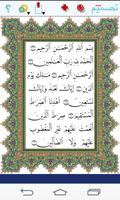 تصميم
بِسْمِ ٱللَّهِ ٱلرَّحْمَٰنِ ٱلرَّحِيمِ
ٱلْحَمْدُ لِلَّهِ رَبِّ ٱلْعَٰلَمِينَ
ٱلرَّحْمَٰنِ ٱلرَّحِيمِ مَٰلِكِ يَوْمِ ٱلدِّينِ
إِيَّاكَ نَعْبُدُ وَإِيَّاكَ نَسْتَعِينُ
ٱهْدِنَا ٱلصِّرَٰطَ ٱلْمُسْتَقِيمَ صِرَٰطَ ٱلَّذِينَ
أَنْعَمْتَ عَلَيْهِمْ غَيْرِ ٱلْمَغْضُوبِ
عَلَيْهِمْ وَلَا ٱلضَّآلِّينَ